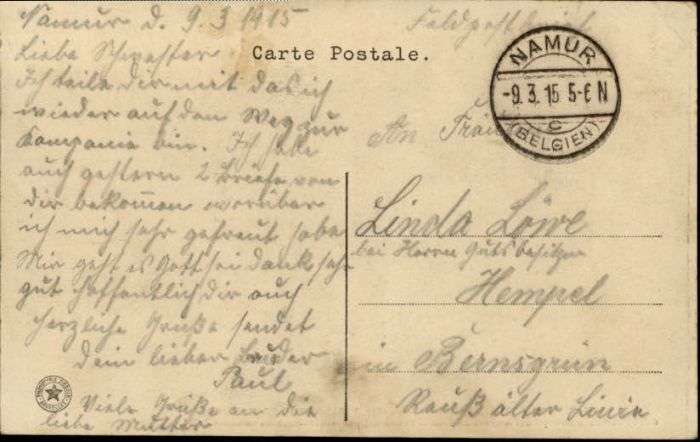 Namur d. 9.3.1915
Liebe Schwester
Ich teile dir mit das ich
wieder auf dem Weg zur
Kompanie bin. Ich habe
auch gestern 2 Briefe von
dir bekommen worüber
ich mich sehr gefreut habe
Mir geht es Gott sei dank sehr
gut hoffentlich dir auch
herzliche Grüße sendet
dein lieber Bruder
Paul
Viele Grüße an die
liebe Mutter
Feldpostbrief
Carte Postale.
NAMUR
-9.3.15 5-6 N
c
(BELGIEN)
An
Linda Löwe
bei Herrn Gutsbesitzer
Hempel
in Bernsgrün
Reuß älter Linie